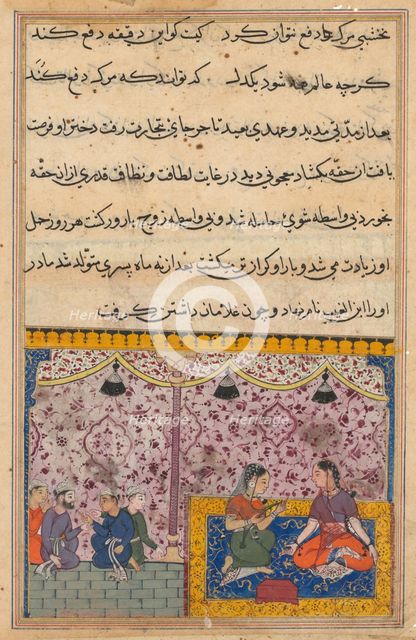 نخشبی مرک را دفع نتوان کرد کیست کو این دقیقه دفع کند
کرچه عالم همه شود یکدل که توانند که مرک دفع کنند
بعد از مدتی مدید و عهدی بعید تاجر جای بتجارت رفت دختر او فرصت
یافت ان حقه بکشاد معجونی دید در غایت لطافت و نظافت قدری از ان حقه
بخورد بی واسطه شوی حامله شد و بی واسطه زوج بارور کشت هر روز حمل
او زیادت می شد و بار او کران تر می کشت بعد از نه ماه پسری متولد شد مادر
او را ابن الغیب نام نهاد و چون غلامان داشتن کرفت
heritage
Heritage
heritage